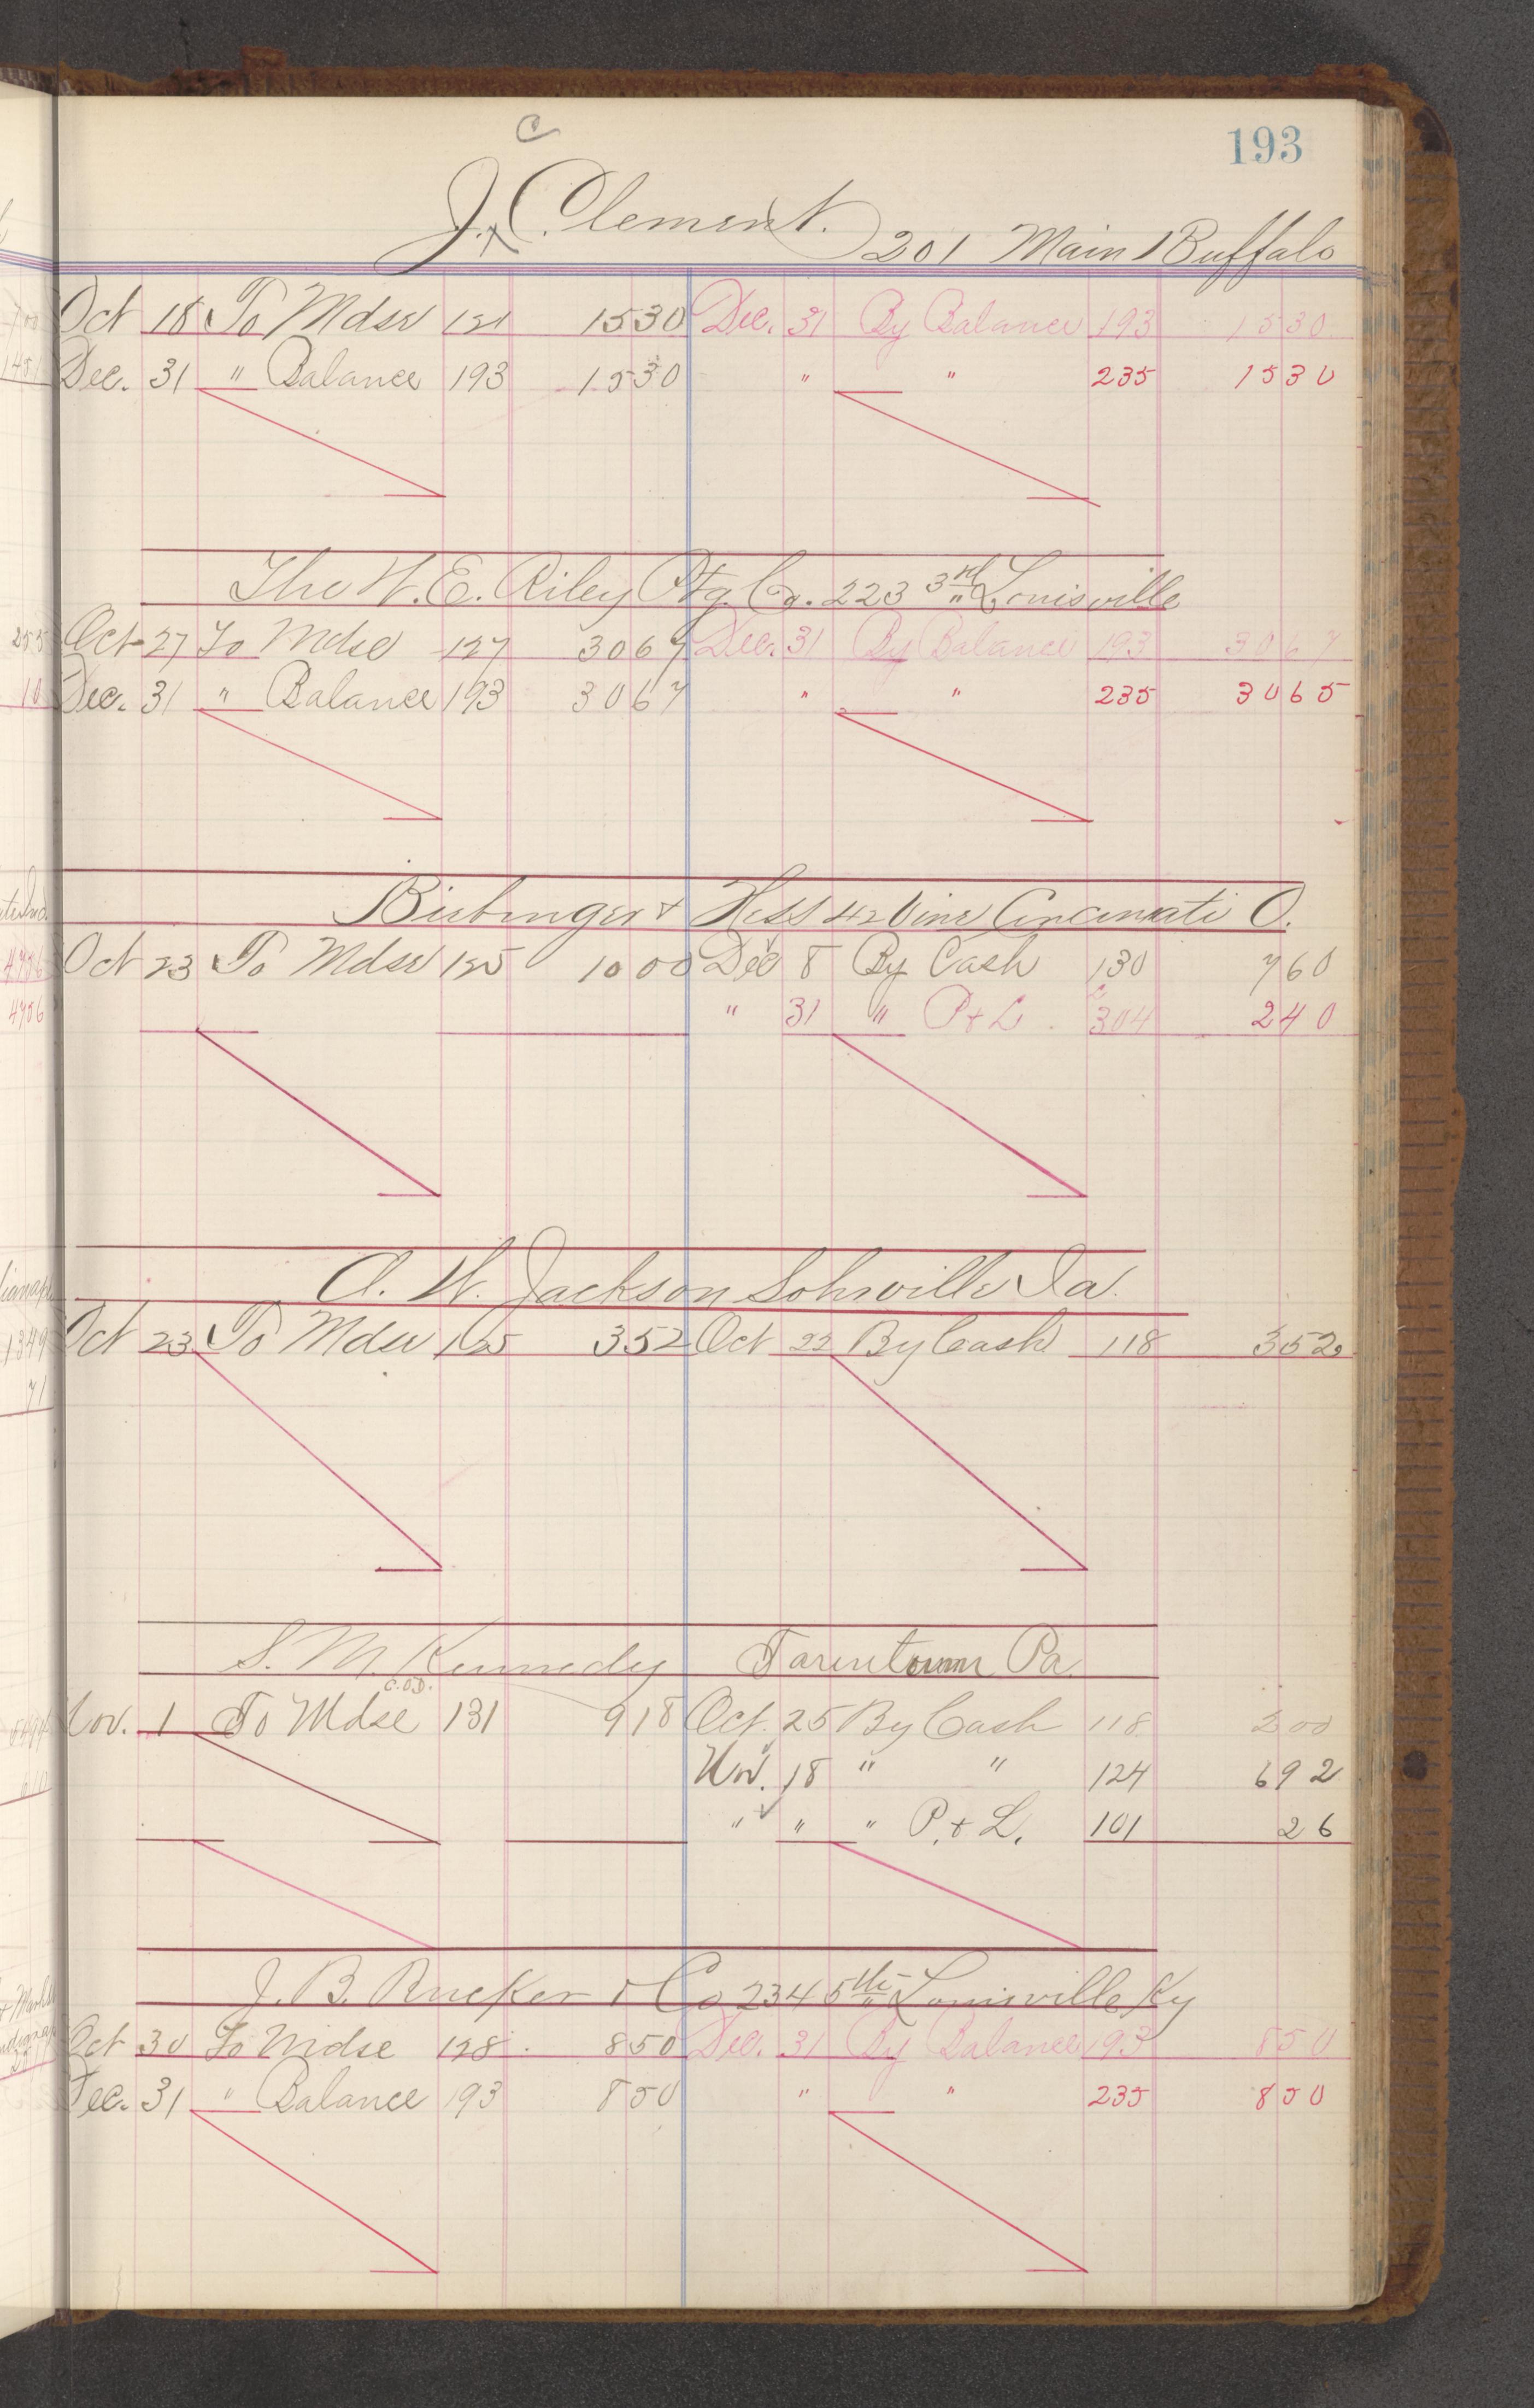 193
C
J. C. Clement. 201 Main Buffalo
Oct 18 To Mdse 121 1530 Dec. 31 By Balance 193 1530
Dec. 31 " Balance 193 1530 " " 235 1530
The W. E. Riley Ptg. Co. 223 3rd Louisville
Oct 27 To Mdse 127 3067 Dec. 31 By Balance 193 3067
Dec. 31 " Balance 193 3067 " " 235 3065
& Hess 42 Vine Cincinnati O.
Oct 23 To Mdse 125 1000 Dec 8 By Cash 130 760
" 31 " P & L. 304 240
A. W. Jackson Ia.
Oct 23 To Mdse 125 352 Oct 22 By Cash 118 352
S. M. Kennedy Tarentum Pa
C.O.D.
Nov. 1 To Mdse 131 918 Oct. 25 By Cash 118 200
Nov. 18 " " 124 692
" " " P. & L. 101 26
J. B. Rucker & Co 234 5th Louisville Ky
Oct 30 To Mdse 128 850 Dec. 31 By Balance 193 850
Dec. 31 " Balance 193 850 " " 235 850